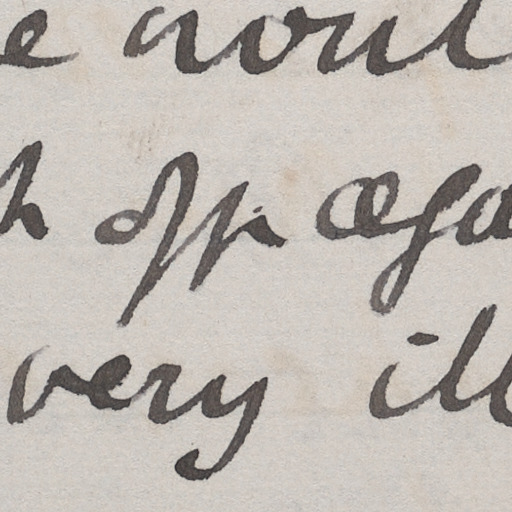 e woul
h off aga
very ill